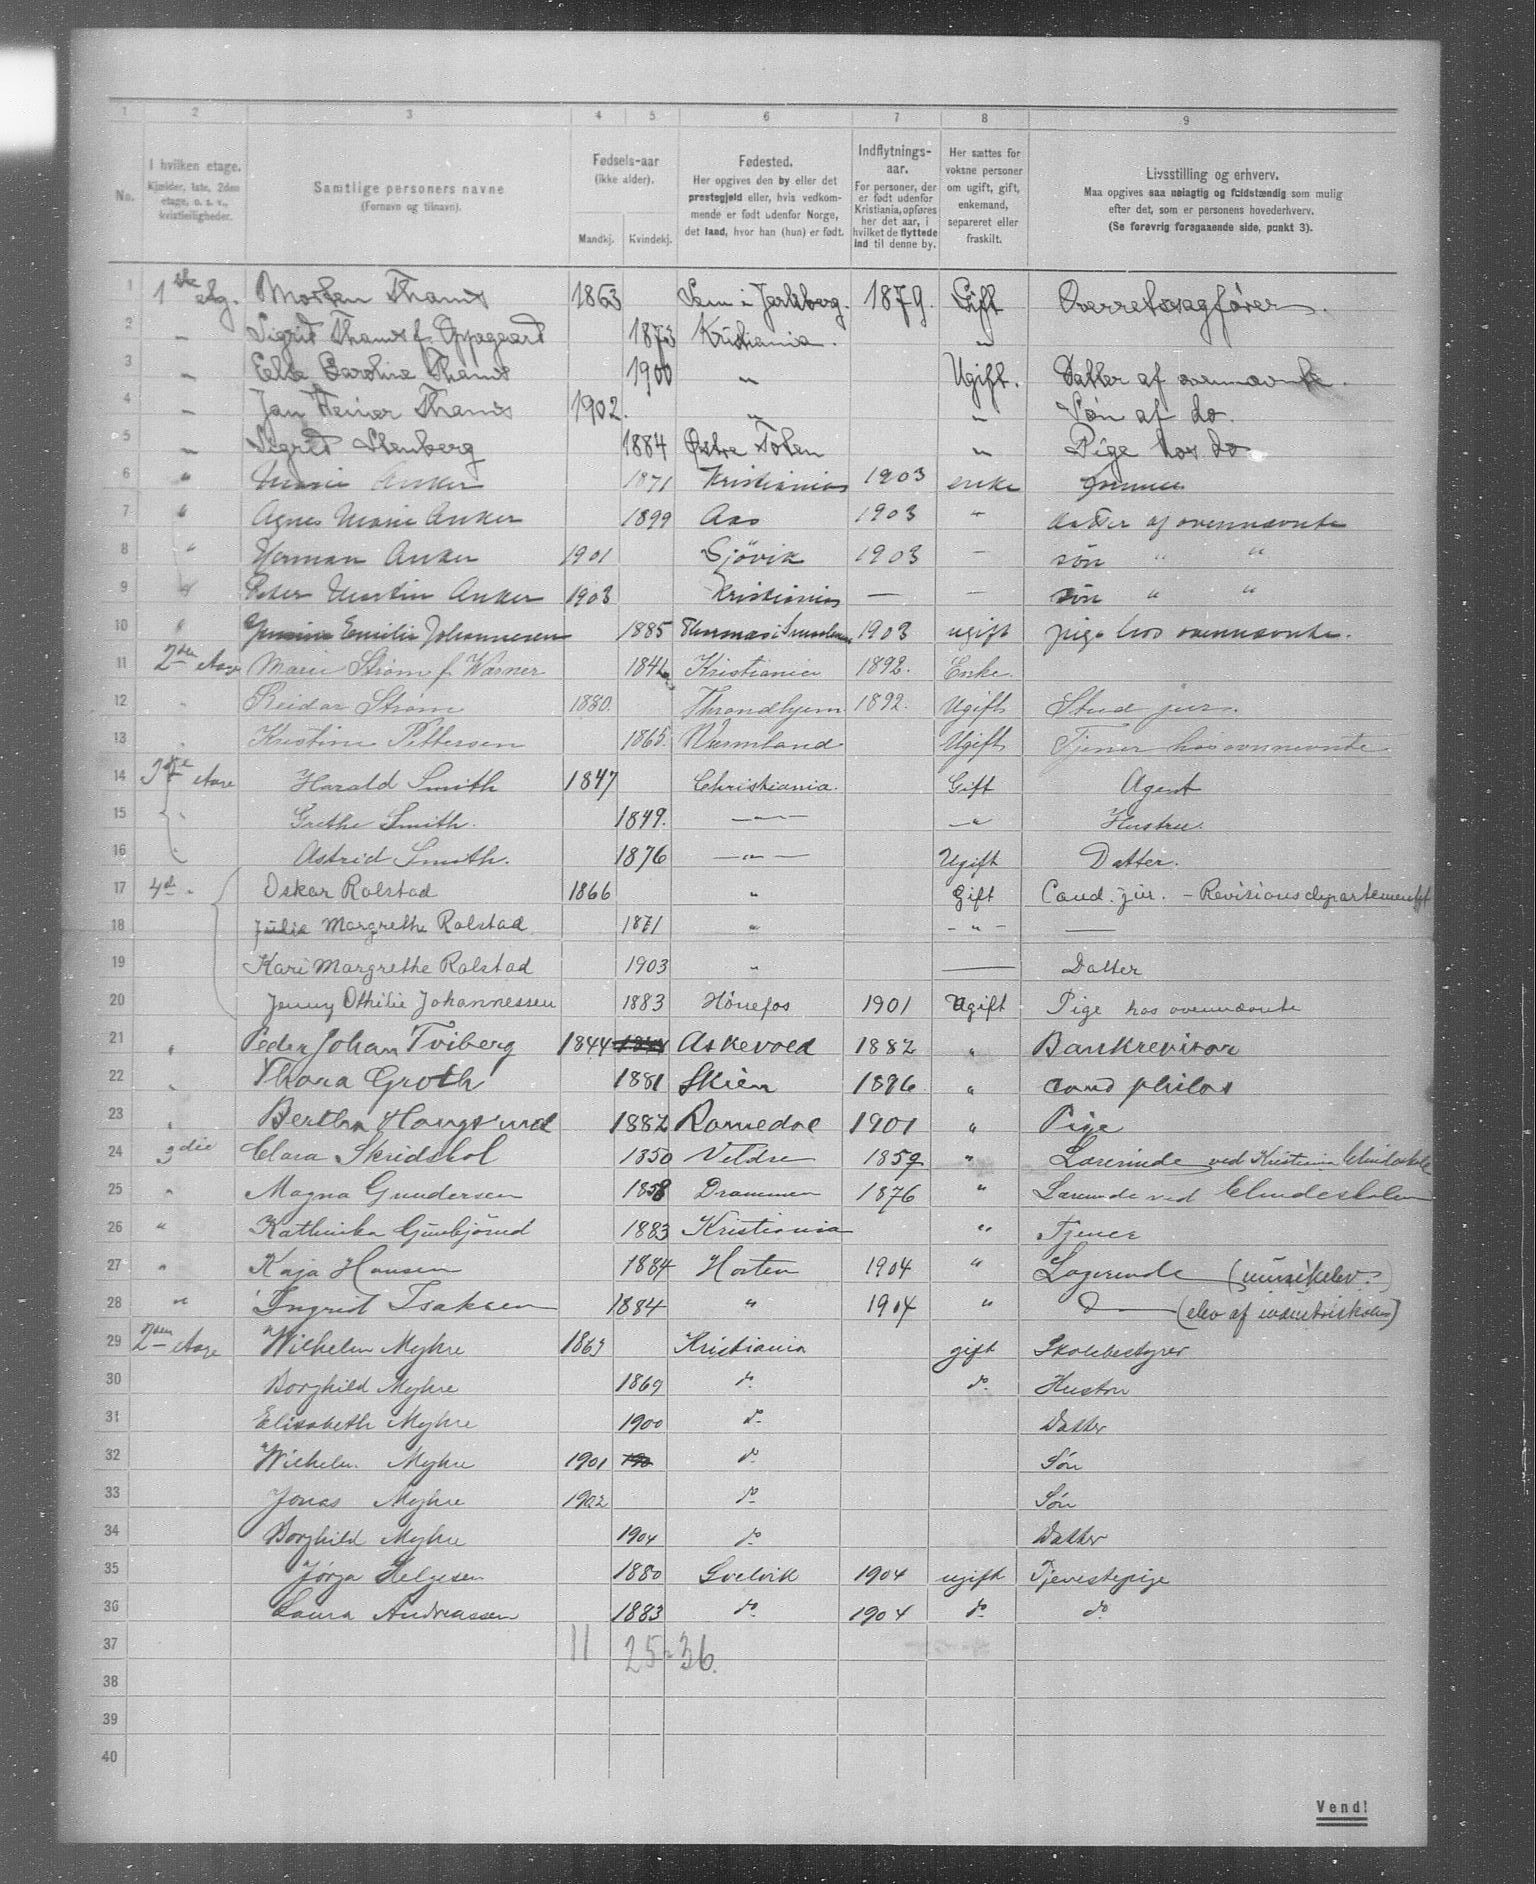 1 2 3 4 5 6 7 8 9
No.
I hvilken etage. Kjælder, 1ste, 2den etage, o. s. v., kvistleiligheder.
Samtlige personers navne (Fornavn og tilnavn).
Fødsels-aar (ikke alder). Mandkj. Kvindekj.
Fødested. Her opgives den by eller det prestegjeld eller, hvis vedkommende er født udenfor Norge, det land, hvor han (hun) er født.
Indflytnings-aar. For personer, der er født udenfor Kristiania, opføres her det aar, i hvilket de flyttede ind til denne by.
Her sættes for voksne personer om ugift, gift, enkemand, separeret eller fraskilt.
Livsstilling og erhverv. Maa opgives saa nøiagtig og fuldstændig som mulig efter det, som er personens hovederhverv. (Se forøvrig foregaaende side, punkt 3).
1 1ste etg. Morten Thams 1863 Sem i Jarlsberg. 1879. Gift Overretssagfører.
2 " Sigrid Thams f. Oppegaard 1873 Kristiania. "
3 " Else Caroline Thams 1900 " Ugift. Datter af ovennævnte.
4 " Jan Heiner Thams 1902. " " Søn af do.
5 " Sigrid Stenberg 1884 Østre Toten " Pige hos do
6 " Marie Anker 1871 Kristiania 1903 enke
7 " Agnes Marie Anker 1899 Aas 1903 " datter af ovennævnte
8 " Herman Anker 1901 Gjövik 1903 – søn " "
9 " Peter Martin Anker 1903 Kristiania — – søn " "
10 " Emilie Johannesen 1885 1903 ugift pige hos ovennævnte.
11 2den Etage Marie Strøm f. Warner 1842 Kristiania 1892. Enke.
12 " Reidar Strøm 1880. Throndhjem 1892. Ugift Stud jur.
13 " Kristine Pettersen 1865. Wermland Ugift Tjener hos ovennævnte
14 3die Etage Harald Smith 1847 Christiania. Gift Agent
15 " Grethe Smith. 1849. —"— —" Hustru.
16 " Astrid Smith. 1876 —"— Ugift Datter.
17 4d " Oskar Rolstad 1866 " Gift Cand. jur. – Revisionsdepartementet
18 Julie Margrethe Rolstad 1871 " – " – —
19 Kari Margrethe Rolstad 1903 " — Datter
20 Jenny Othilie Johannessen 1883 Hönefos 1901 Ugift Pige hos ovennævnte
21 " Peder Johan Tviberg 1844 Askevold 1882 " Bankrevisor
22 " Thora Groth 1881 Skien 1896 " cand philos
23 " Bertha Haugsund 1882 Romedal 1901 " Pige
24 3die Clara Skridshol 1850 Veldre 1859 " Lærerinde ved Kristiania
25 " Magna Gundersen 1858 Drammen 1876 " Lærerinde ved
26 " Kathinka Gunbjörud 1883 Kristiania " Tjener
27 " Kaja Hansen 1884 Horten 1904 " Logerende (musikelev.)
28 " Ingrid Isaksen 1884 " 1904 " D— (elev af industriskolen)
29 2den Etage Wilhelm Myhre 1863 Kristiania gift Skolebestyrer
30 Borghild Myhre 1869 do do. Hustru
31 Elisabeth Myhre 1900 do Datter
32 Wilhelm Myhre 1901 do Søn
33 Jonas Myhre 1902 do Søn
34 Borghild Myhre 1904 do Datter
35 Jørga Helgesen 1880 Svelvik 1904 ugift Tjenestepige
36 Laura Andreassen 1883 do 1904 do do
37 11 25=36.
38
39
40
Vend!